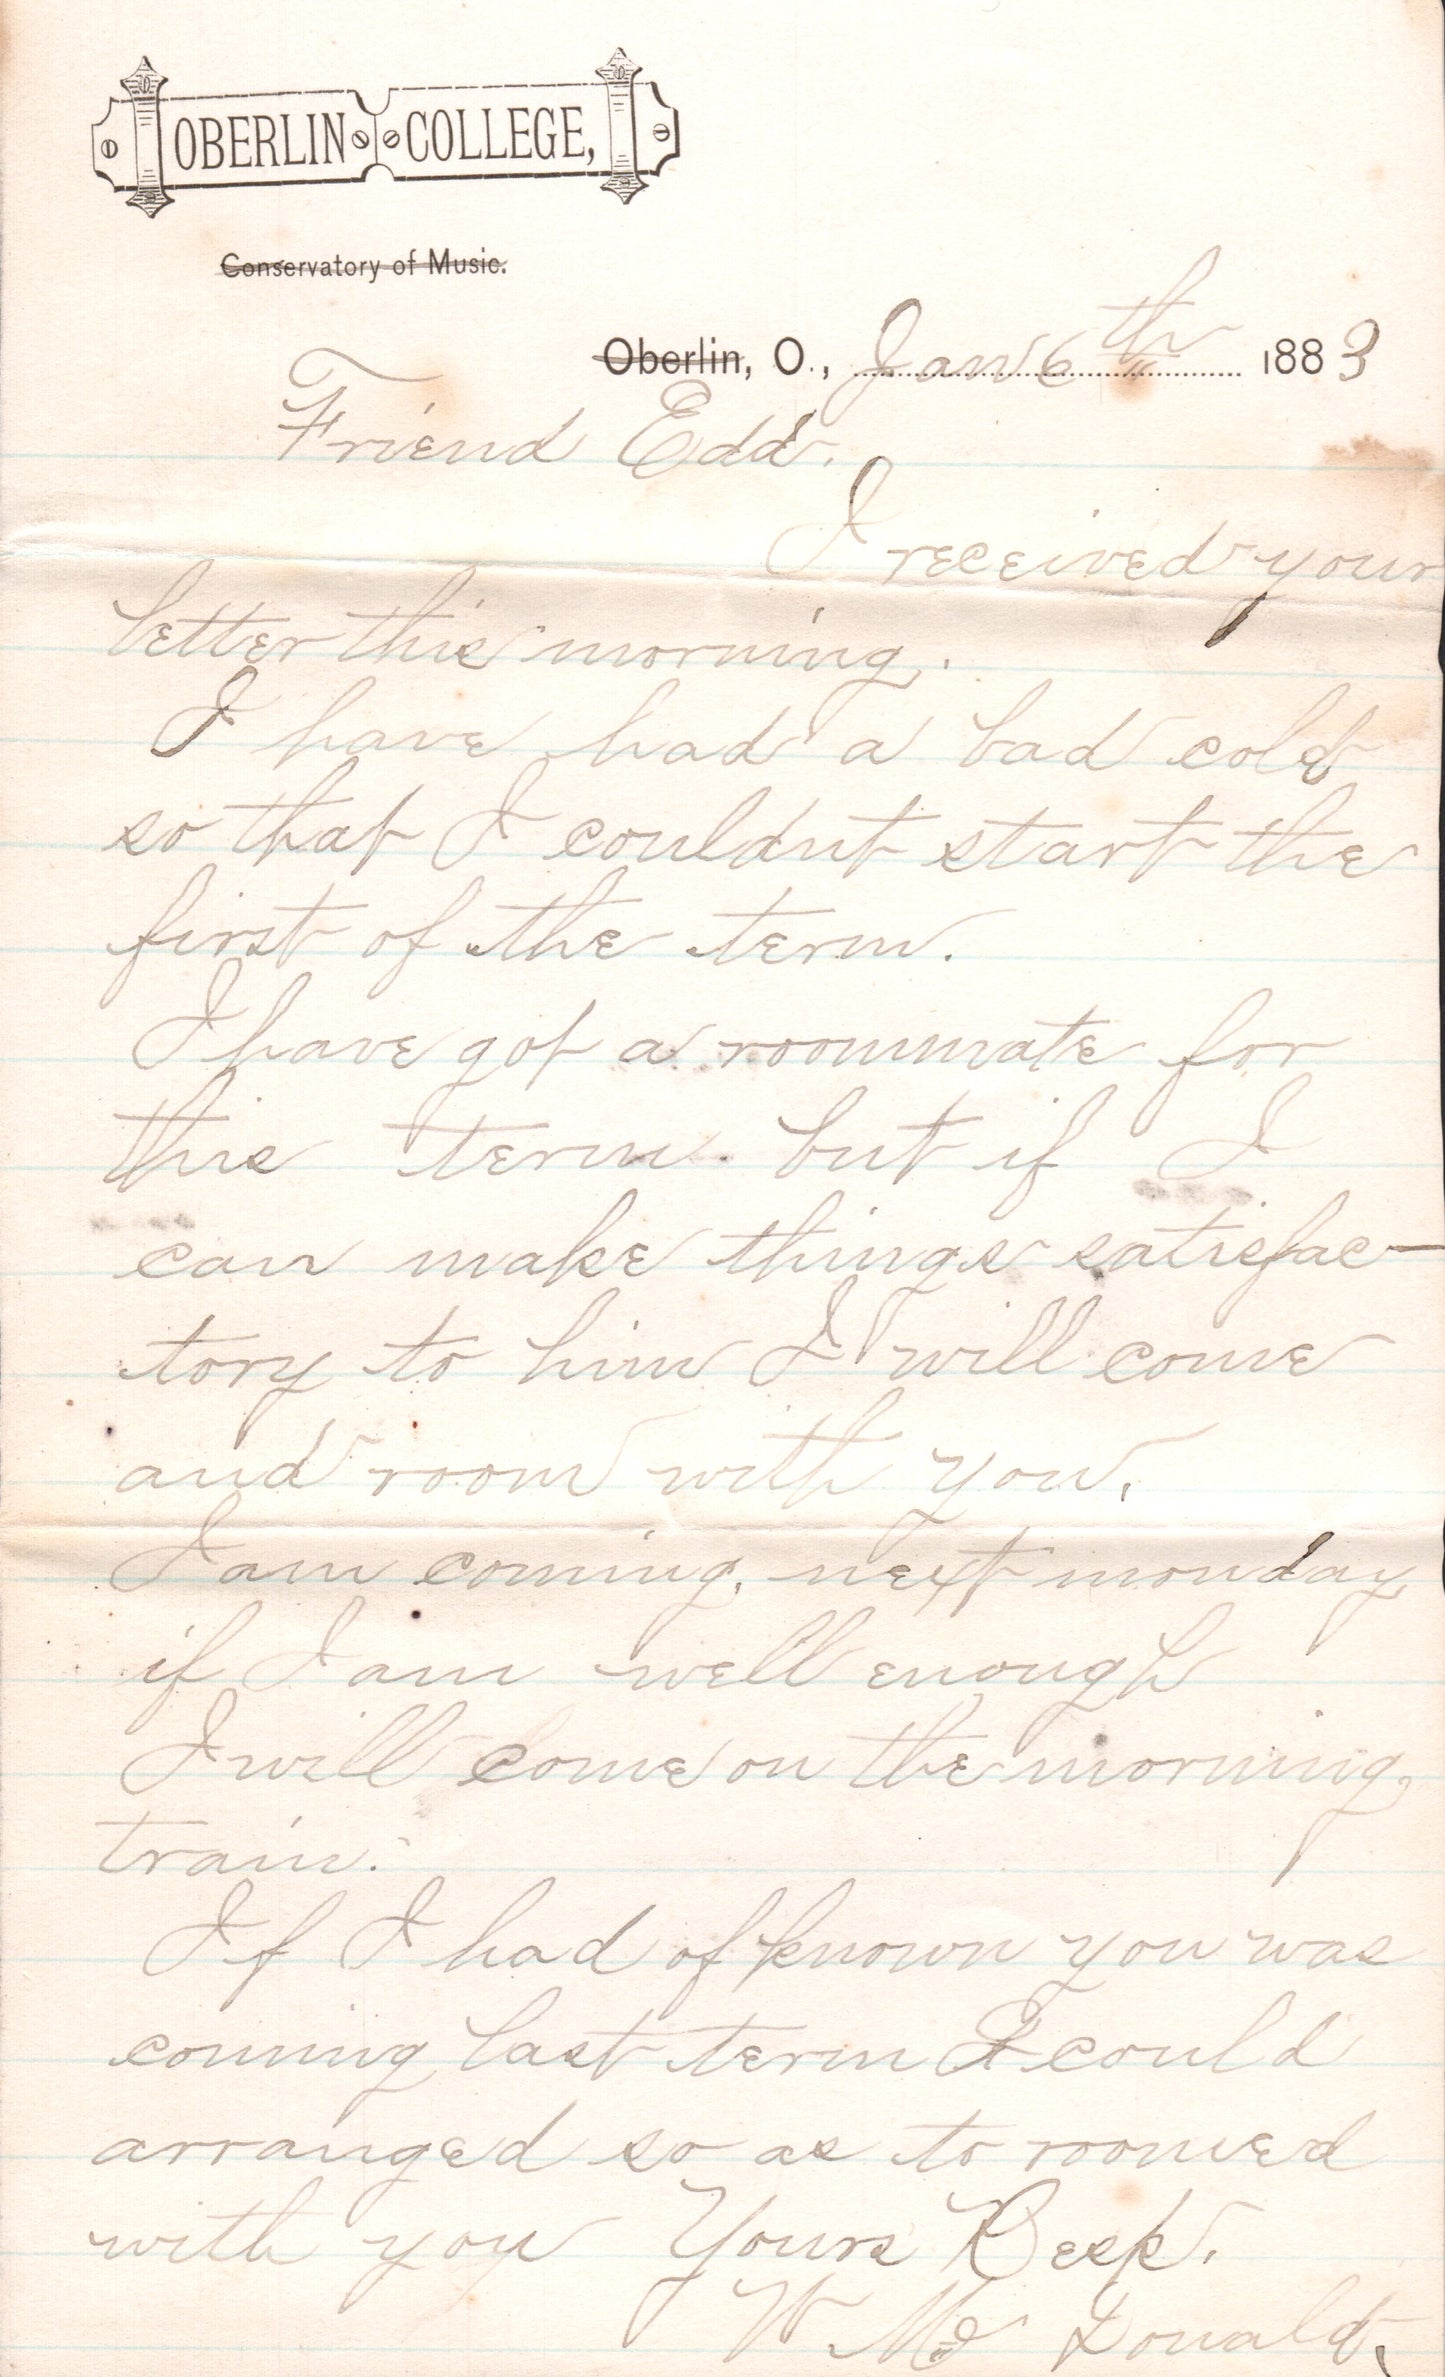 OBERLIN COLLEGE,
Conservatory of Music.
Oberlin, O., Jan 6th 1883
Friend Edd.
I received your
letter this morning.
I have had a bad cold
so that I couldnt start the
first of the term.
I have got a roommate for
this term. but if I
can make things satisfac-
tory to him I will come
and room with you.
I am coming, next monday
if I am well enough
I will come on the morning
train.
If I had of known you was
coming last term I could
arranged so as to roomed
with you Yours Resp.
W Mc Donald.